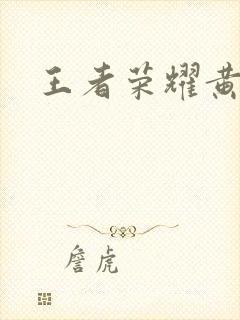 王者荣耀黄
詹虎